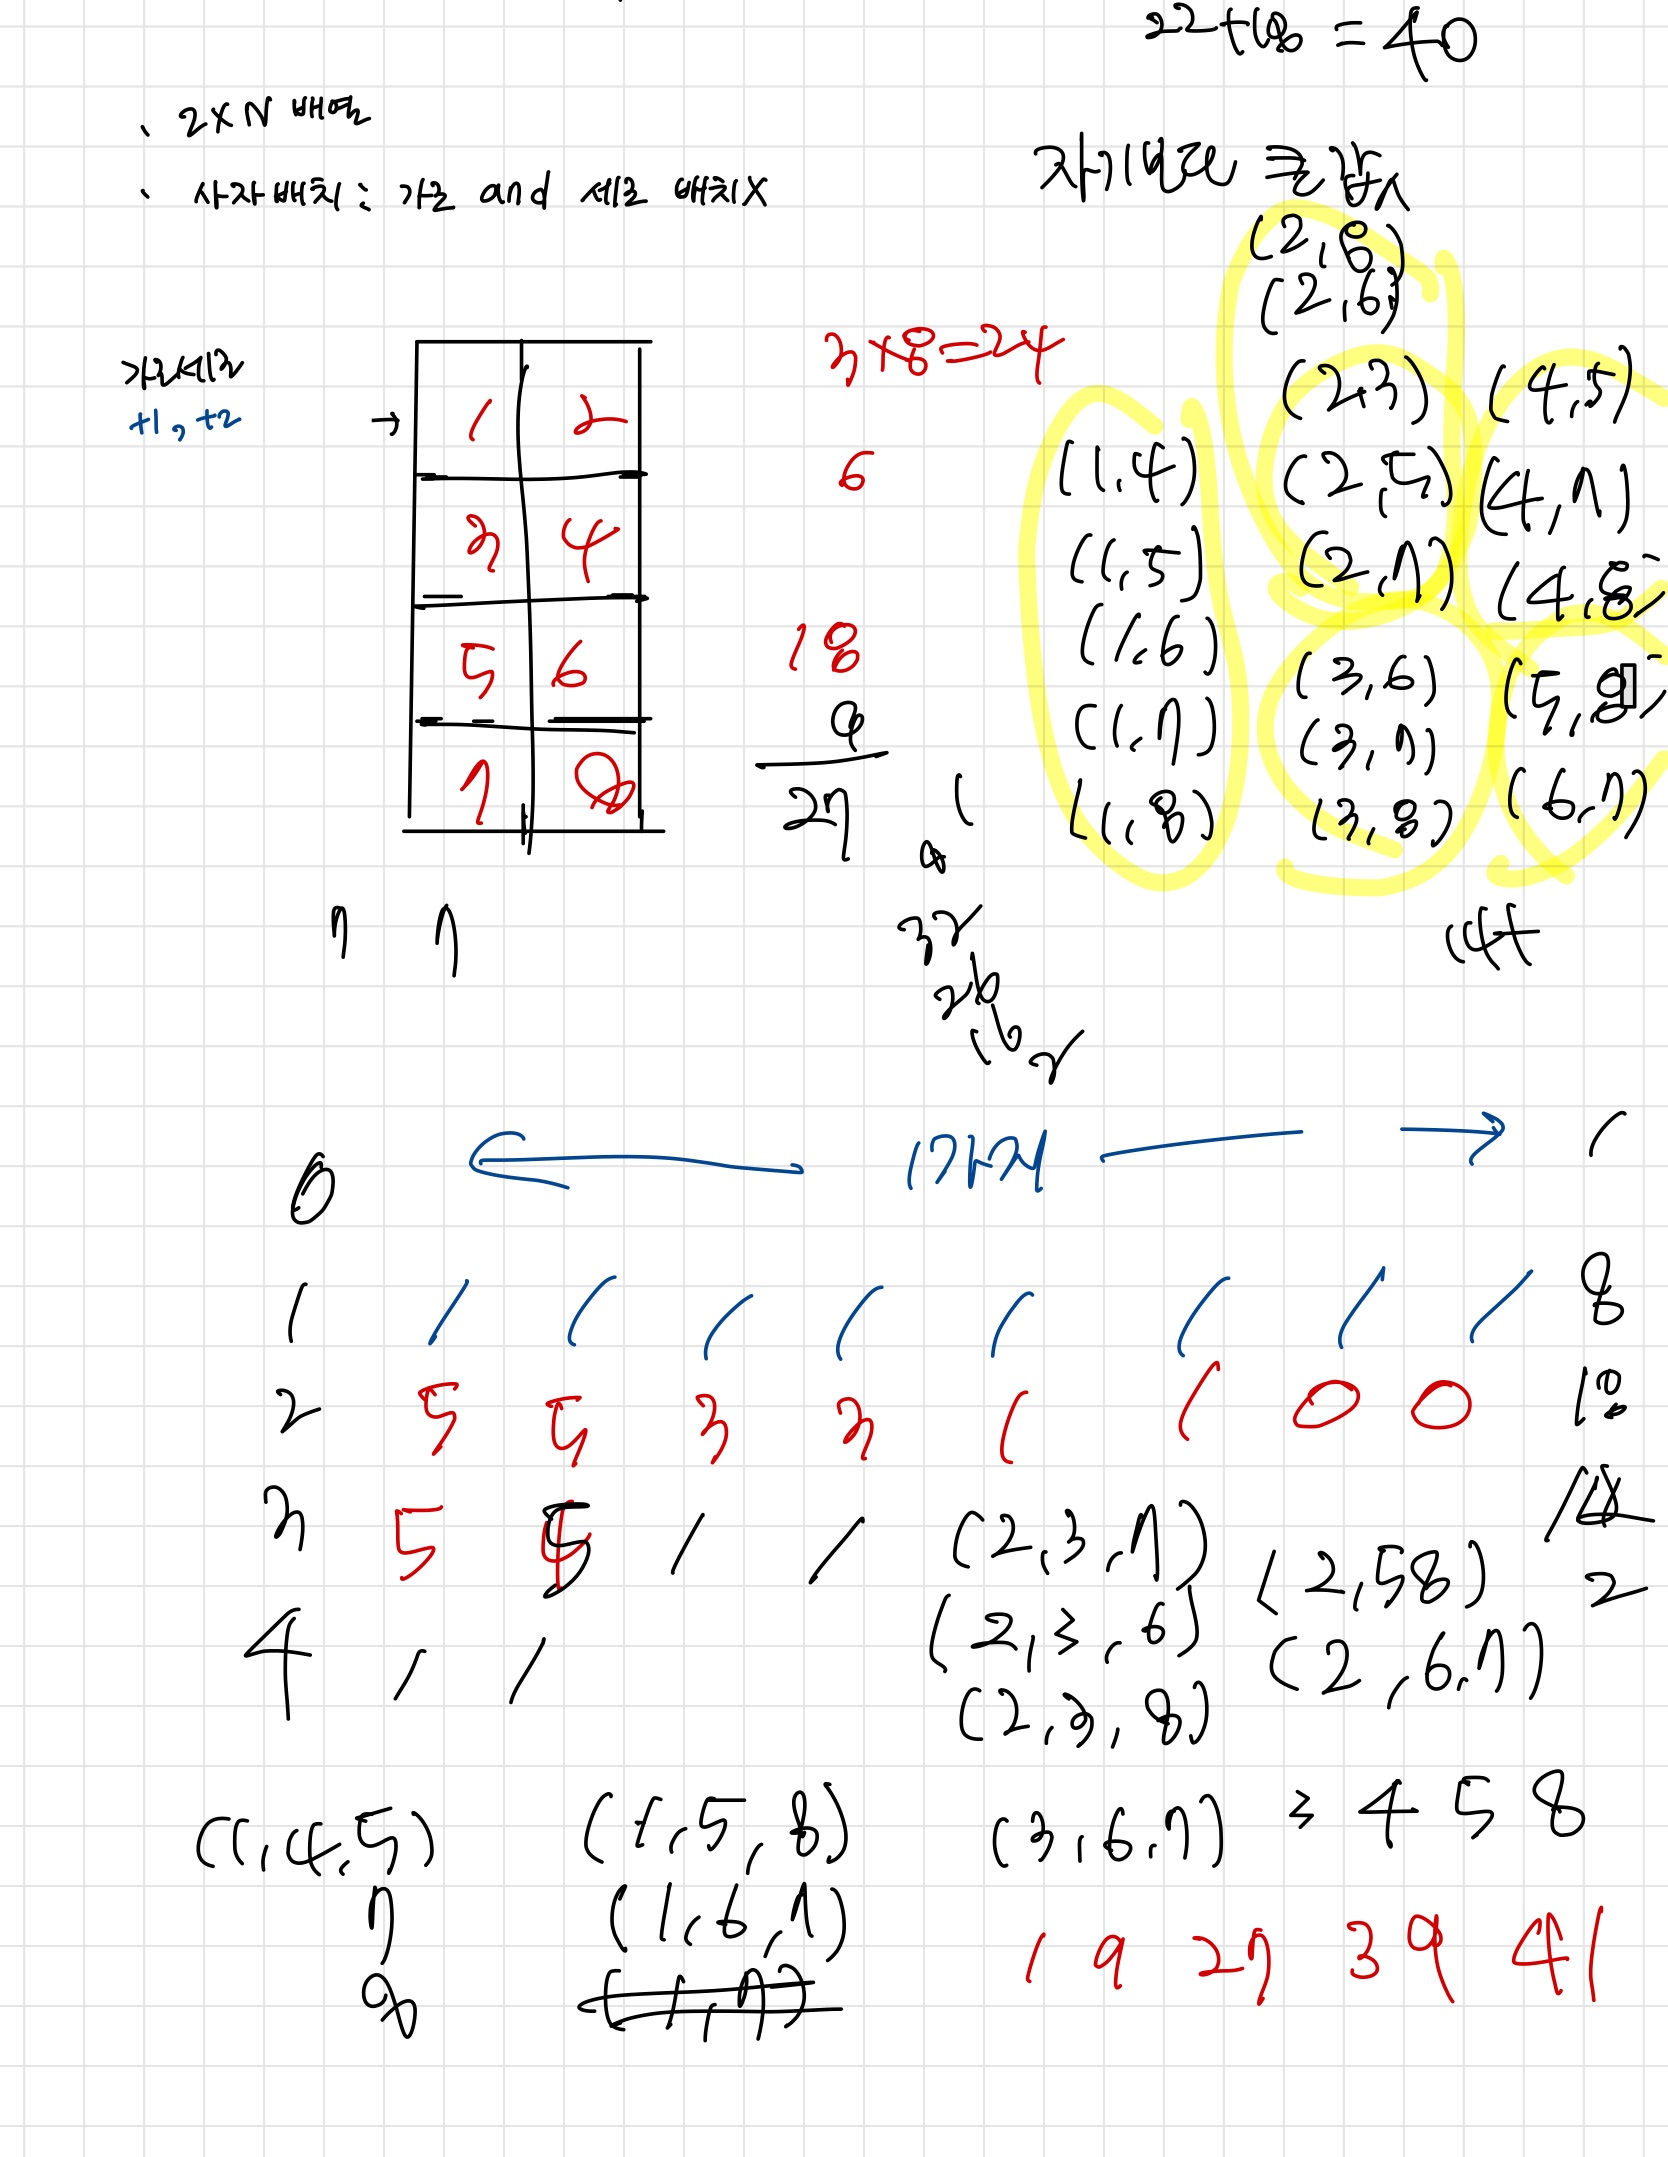 22+18 = 40
· 2×N 배열
· 사자배치 : 가로 and 세로 배치X
자기보다 큰 값
(2,8)
(2,6)
3×8=24
가로세로
+1, +2
→ 1 2
6
(2,3) (4,5)
(1,4) (2,5) (4,7)
3 4
(1,5) (2,7) (4,8)
18
5 6
(1,6) (3,6) (5,8)
9
(1,7) (3,7)
27
7 8
(1,8) (3,8) (6,7)
1
8
7 7
32
14+
26
16
2
0 ← 1가지 → 1
1 1 1 1 1 1 1 1 1 8
2 5 5 3 3 1 1 0 0 18
3 5 5 1 1 (2,3,7) (2,5 8)
2
4 1 1 (2,3,6) (2,6,7)
(2,3,8)
(1,4,5) (1,5,8) (3,6,7) 3 4 5 8
7 (1,6,7)
8 (1,7)
1 9 27 39 41